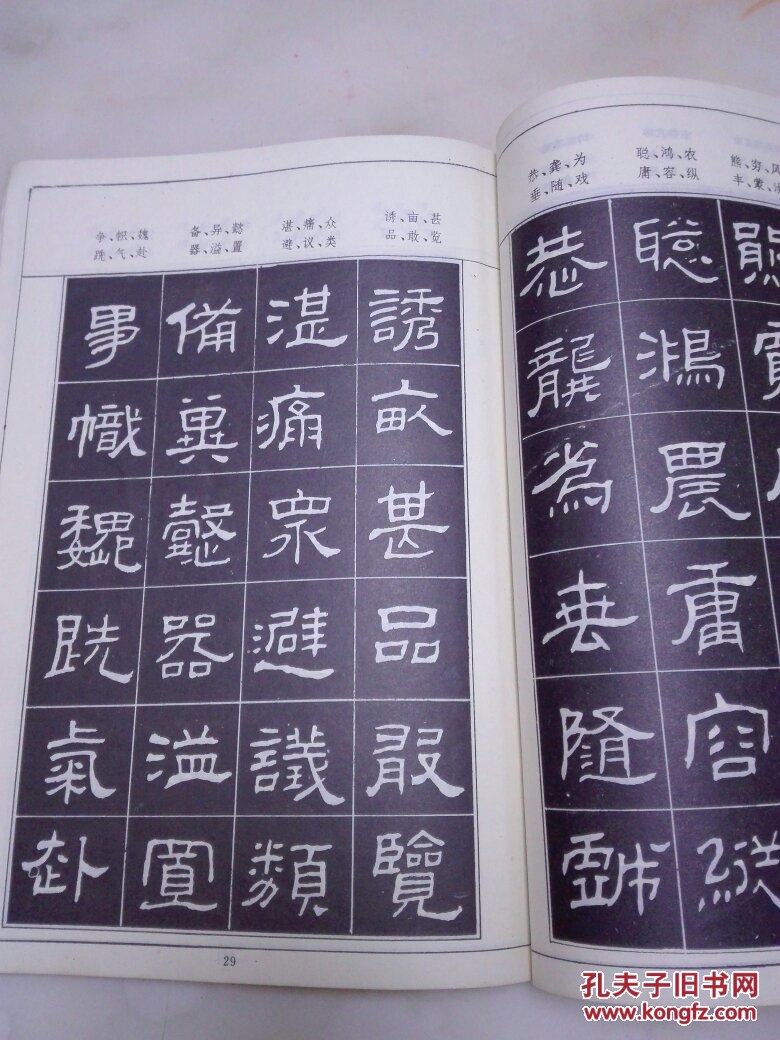 诱、亩、甚
品、敢、览
湛、痛、众
避、议、类
备、异、懿
器、溢、置
争、帜、魏
跣、气、赴
誘 畝 甚 品 敢 覽
湛 痛 衆 避 議 類
備 異 懿 器 溢 置
爭 幟 魏 跣 氣 赴
29
熊、穷、风
丰、蒙
聪、鸿、农
庸、容、纵
恭、龚、为
垂、随、戏
聰 鴻 農 庸 容 縱
恭 龔 為 垂 隨 戲
孔夫子旧书网
www.kongfz.com